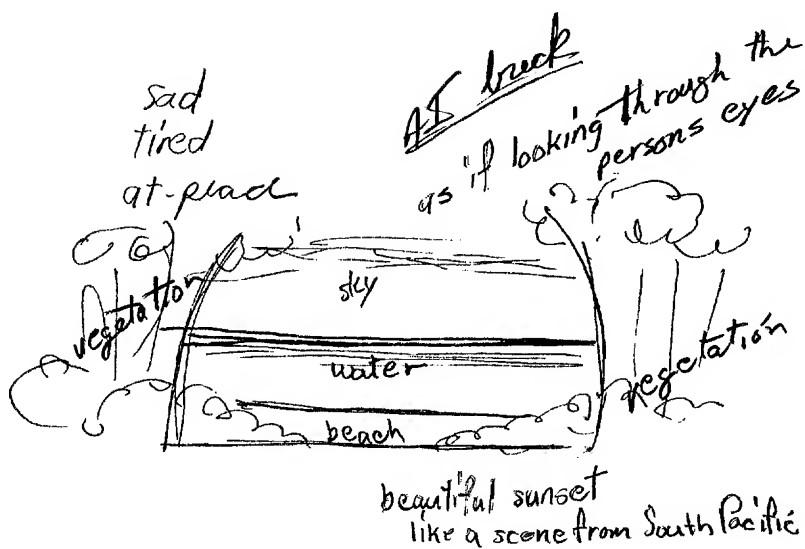 sad
tired
at-peace
as if looking through the
persons eyes
vegetation
sky
water
beach
vegetation
beautiful sunset
like a scene from South Pacific